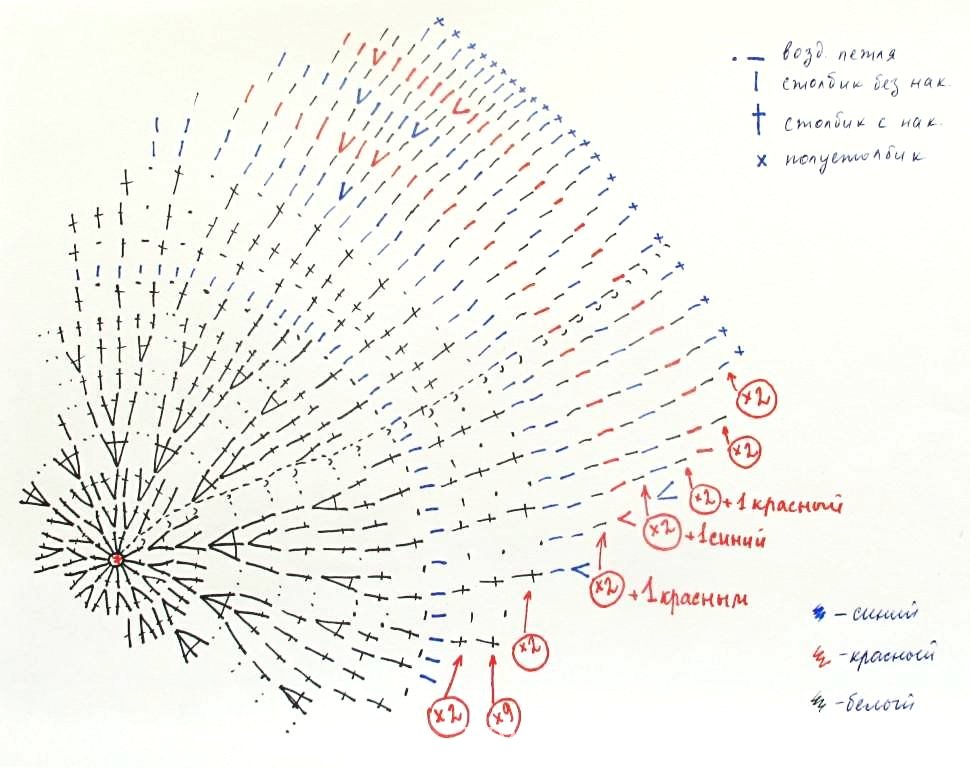 · – возд. петля
| столбик без нак.
† столбик с нак.
x полустолбик
x2
x2
x2 +1 красный
x2 +1 синий
x2 +1 красным
x2
x2
x9
- синий
- красный
- белый